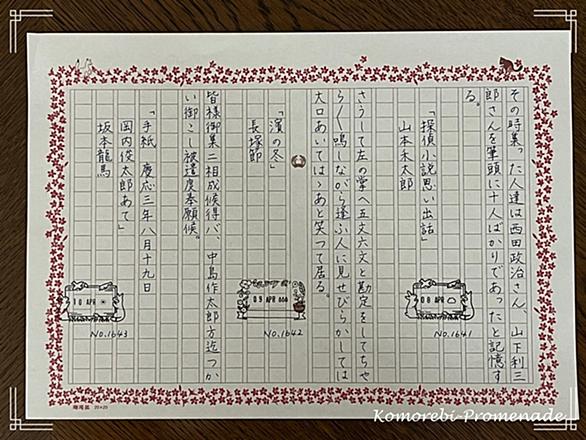 その時集った人達は西田政治さん、山下利三
郎さんを筆頭に十人ばかりであったと記憶す
る。
「探偵小説思い出話」
山本禾太郎
08 APR
No.1641
さうして左の掌へ五文六文と勘定をしてちや
ら〱鳴しながら逢ふ人に見せびらかしては
大口あいてはゝあと笑つて居る。
「濱の冬」
長塚節
09 APR
No.1642
皆様御集ニ相成候得バ、中島作太郎方迄つか
い御こし被遣度奉願候。
「手紙 慶応三年八月十九日
岡内俊太郎あて」
坂本龍馬
10 APR
No.1643
20×20
Komorebi-Promenade